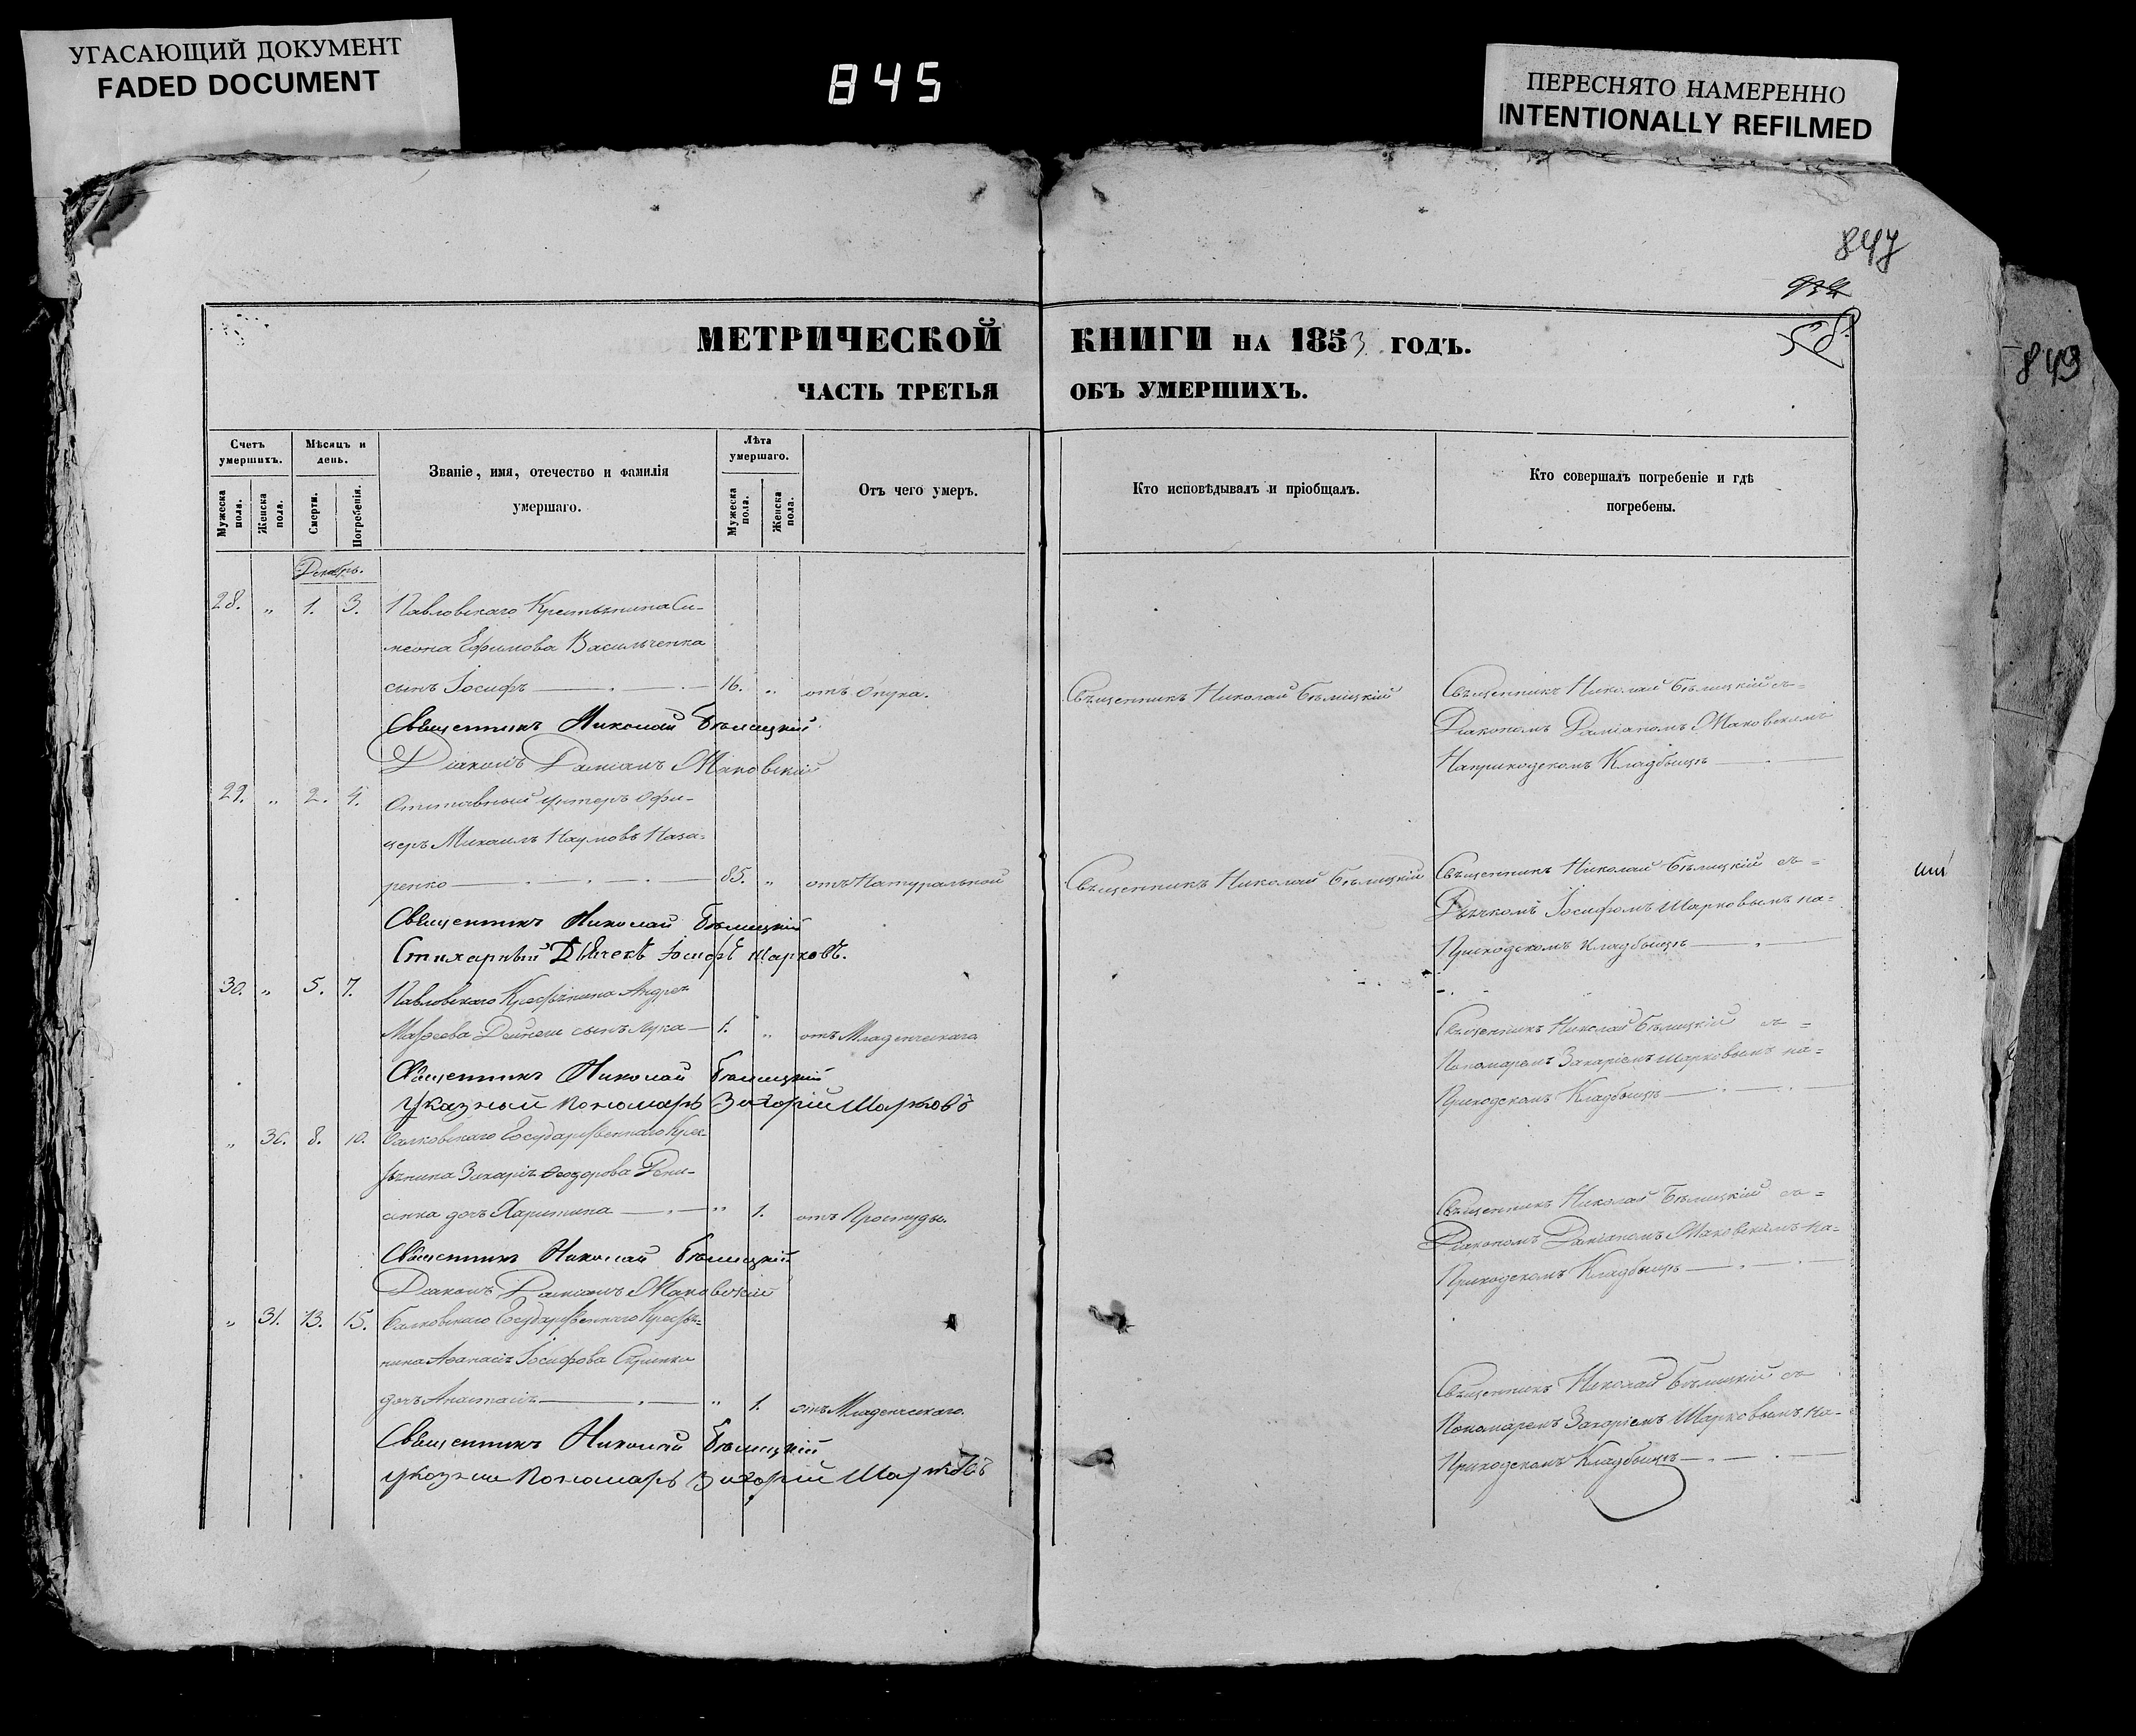 УГАСАЮЩИЙ ДОКУМЕНТ
FADED DOCUMENT
845
ПЕРЕСНЯТО НАМЕРЕННО
INTENTIONALLY REFILMED
847
932
58
849
МЕТРИЧЕСКОЙ КНИГИ НА 1853 ГОДЪ.
ЧАСТЬ ТРЕТЬЯ ОБЪ УМЕРШИХЪ.
Счетъ умершихъ.
Мужеска пола.
Женска пола.
Мѣсяцъ и день.
Смерти.
Погребенія.
Званіе, имя, отечество и фамилія
умершаго.
Лѣта умершаго.
Мужеска пола.
Женска пола.
Отъ чего умеръ.
Кто исповѣдывалъ и пріобщалъ.
Кто совершалъ погребеніе и гдѣ
погребены.
Декабрь.
28. „ 1. 3. Павловскаго Крестьянина Си-
меона Ефимова Васильченка
сынъ Іосифъ 16. „ отъ Опуха. Священникъ Николай Бѣлицкій Священникъ Николай Бѣлицкій съ
Священникъ Николай Бѣлицкій Діакономъ Даміаномъ Маковскимъ
Діаконъ Даміанъ Маковскій На приходскомъ Кладбищѣ
29. „ 2. 4. Отставный унтеръ офи-
церъ Михаилъ Наумовъ Наза-
ренко 85. „ отъ Натуральной Священникъ Николай Бѣлицкій Священникъ Николай Бѣлицкій съ
Священникъ Николай Бѣлицкій Дьячкомъ Іосифомъ Шарковымъ на
Стихарный Дьячекъ Іосифъ Шарковъ. Приходскомъ Кладбищѣ
30. „ 5. 7. Павловскаго Крестьянина Андрея
Матѳеева Дейнеки сынъ Лука 1. „ отъ Младенческаго Священникъ Николай Бѣлицкій съ
Священникъ Николай Бѣлицкій Пономаремъ Захаріемъ Шарковымъ на
Указный Пономарь Захорій Шарковъ Приходскомъ Кладбищѣ
„ 30. 8. 10. Балковскаго Государственнаго Крес-
тьянина Захарія Ѳеодорова Дени-
сенка дочь Харитина „ 1. отъ Простуды. Священникъ Николай Бѣлицкій съ
Священникъ Николай Бѣлицкій Діакономъ Даміаномъ Маковскимъ на
Діаконъ Даміанъ Маковскій Приходскомъ Кладбищѣ
„ 31. 13. 15. Балковскаго Государственнаго Крестья-
нина Аѳанасія Іосифова
дочь Анастасія „ 1. отъ Младенческаго. Священникъ Николай Бѣлицкій съ
Священникъ Николай Бѣлицкій Пономаремъ Захаріемъ Шарковымъ на
Указный Пономарь Захорій Шарковъ Приходскомъ Кладбищѣ